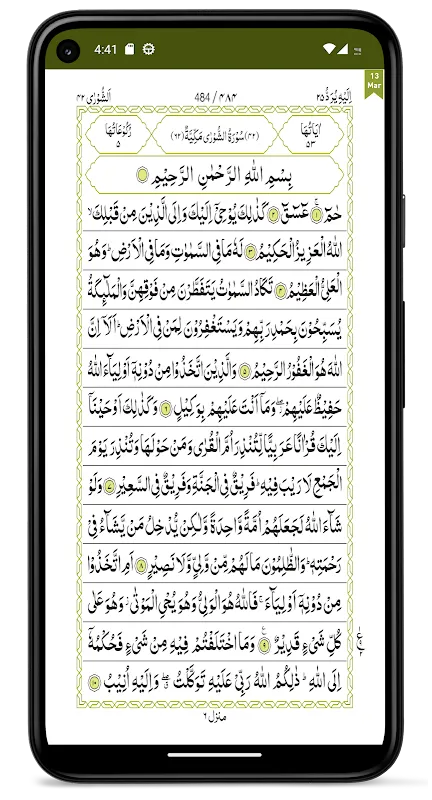 4:41
13
Mar
اِلَیْهِ یُرَدُّ ۲۵
484 / ۴۸۴
اَلشُّوْرٰی ۴۲
اٰیَاتُهَا ۵۳
(۴۲) سُوْرَةُ الشُّوْرٰی مَكِّیَّةٌ (۶۲)
رُكُوْعَاتُهَا ۵
بِسْمِ اللّٰهِ الرَّحْمٰنِ الرَّحِیْمِ
حٰمٓ ۚ‏﴿۱﴾ عٓسٓقٓ ﴿۲﴾ كَذٰلِكَ یُوْحِیْۤ اِلَیْكَ وَ اِلَی الَّذِیْنَ مِنْ قَبْلِكَ ۙ
اللّٰهُ الْعَزِیْزُ الْحَكِیْمُ ﴿۳﴾ لَهٗ مَا فِی السَّمٰوٰتِ وَ مَا فِی الْاَرْضِ ؕ وَ هُوَ
الْعَلِیُّ الْعَظِیْمُ ﴿۴﴾ تَكَادُ السَّمٰوٰتُ یَتَفَطَّرْنَ مِنْ فَوْقِهِنَّ وَ الْمَلٰٓىِٕكَةُ
یُسَبِّحُوْنَ بِحَمْدِ رَبِّهِمْ وَ یَسْتَغْفِرُوْنَ لِمَنْ فِی الْاَرْضِ ؕ اَلَاۤ اِنَّ
اللّٰهَ هُوَ الْغَفُوْرُ الرَّحِیْمُ ﴿۵﴾ وَ الَّذِیْنَ اتَّخَذُوْا مِنْ دُوْنِهٖۤ اَوْلِیَآءَ اللّٰهُ
حَفِیْظٌ عَلَیْهِمْ ۖؗ وَ مَاۤ اَنْتَ عَلَیْهِمْ بِوَكِیْلٍ ﴿۶﴾ وَ كَذٰلِكَ اَوْحَیْنَاۤ
اِلَیْكَ قُرْاٰنًا عَرَبِیًّا لِّتُنْذِرَ اُمَّ الْقُرٰی وَ مَنْ حَوْلَهَا وَ تُنْذِرَ یَوْمَ
الْجَمْعِ لَا رَیْبَ فِیْهِ ؕ فَرِیْقٌ فِی الْجَنَّةِ وَ فَرِیْقٌ فِی السَّعِیْرِ ﴿۷﴾ وَ لَوْ
شَآءَ اللّٰهُ لَجَعَلَهُمْ اُمَّةً وَّاحِدَةً وَّ لٰكِنْ یُّدْخِلُ مَنْ یَّشَآءُ فِیْ
رَحْمَتِهٖ ؕ وَ الظّٰلِمُوْنَ مَا لَهُمْ مِّنْ وَّلِیٍّ وَّ لَا نَصِیْرٍ ﴿۸﴾ اَمِ اتَّخَذُوْا
مِنْ دُوْنِهٖۤ اَوْلِیَآءَ ۚ فَاللّٰهُ هُوَ الْوَلِیُّ وَ هُوَ یُحْیِ الْمَوْتٰی ؗ وَ هُوَ عَلٰی
كُلِّ شَیْءٍ قَدِیْرٌ ﴿۹﴾ وَ مَا اخْتَلَفْتُمْ فِیْهِ مِنْ شَیْءٍ فَحُكْمُهٗۤ
اِلَی اللّٰهِ ؕ ذٰلِكُمُ اللّٰهُ رَبِّیْ عَلَیْهِ تَوَكَّلْتُ ۖۗ وَ اِلَیْهِ اُنِیْبُ ﴿۱۰﴾
منزل ۶